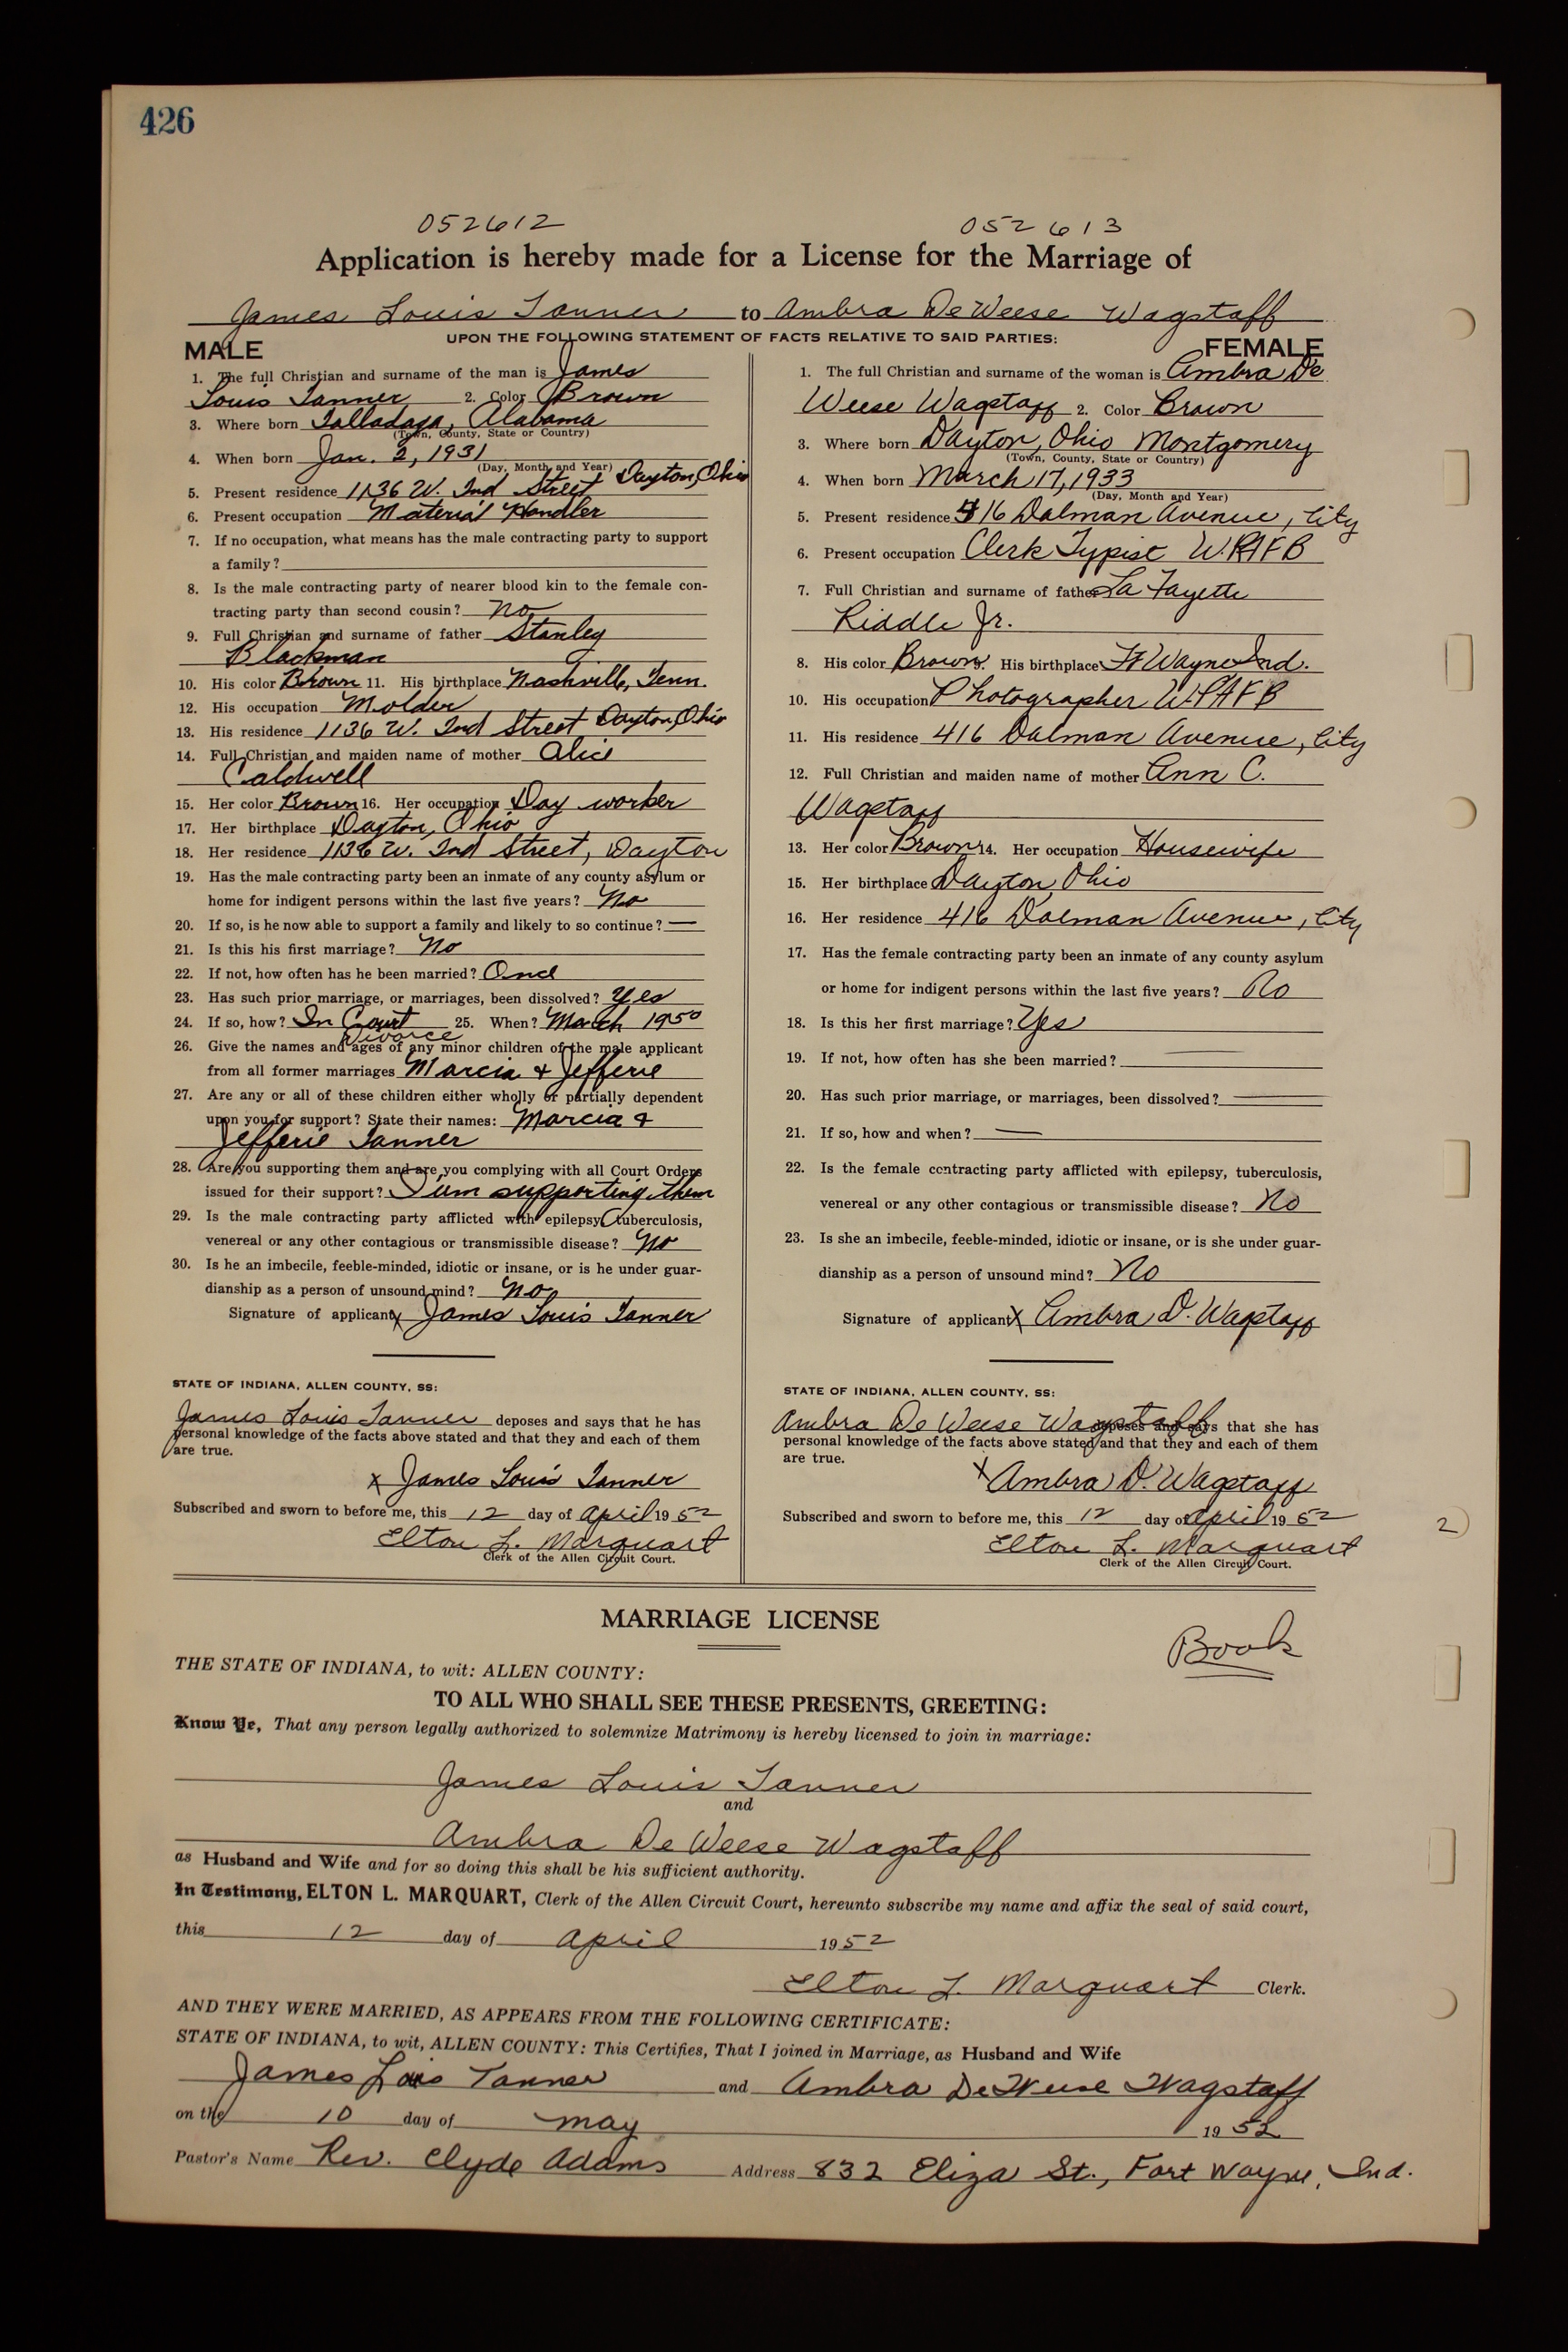 426
052612
052613
Application is hereby made for a License for the Marriage of
James Louis Tanner to Ambra DeWeese Wagstaff
UPON THE FOLLOWING STATEMENT OF FACTS RELATIVE TO SAID PARTIES:
MALE
1. The full Christian and surname of the man is James
Louis Tanner 2. Color Brown
3. Where born Talladaga, Alabama
(Town, County, State or Country)
4. When born Jan. 2, 1931
(Day, Month and Year)
5. Present residence 1136 W. 2nd Street Dayton, Ohio
6. Present occupation Material Handler
7. If no occupation, what means has the male contracting party to support
a family?
8. Is the male contracting party of nearer blood kin to the female con-
tracting party than second cousin? no
9. Full Christian and surname of father Stanley
Blackman
10. His color Brown 11. His birthplace Nashville, Tenn.
12. His occupation Molder
13. His residence 1136 W. 2nd Street Dayton, Ohio
14. Full Christian and maiden name of mother Alice
Caldwell
15. Her color Brown 16. Her occupation Day worker
17. Her birthplace Dayton, Ohio
18. Her residence 1136 W. 2nd Street, Dayton
19. Has the male contracting party been an inmate of any county asylum or
home for indigent persons within the last five years? No
20. If so, is he now able to support a family and likely to so continue? —
21. Is this his first marriage? No
22. If not, how often has he been married? Once
23. Has such prior marriage, or marriages, been dissolved? Yes
24. If so, how? In Court 25. When? March 1950
Divorce
26. Give the names and ages of any minor children of the male applicant
from all former marriages Marcia & Jefferie
27. Are any or all of these children either wholly or partially dependent
upon you for support? State their names: Marcia &
Jefferie Tanner
28. Are you supporting them and are you complying with all Court Orders
issued for their support? I am supporting them
29. Is the male contracting party afflicted with epilepsy, tuberculosis,
venereal or any other contagious or transmissible disease? No
30. Is he an imbecile, feeble-minded, idiotic or insane, or is he under guar-
dianship as a person of unsound mind? no
Signature of applicant x James Louis Tanner
STATE OF INDIANA, ALLEN COUNTY, SS:
James Louis Tanner deposes and says that he has
personal knowledge of the facts above stated and that they and each of them
are true.
x James Louis Tanner
Subscribed and sworn to before me, this 12 day of April 1952
Elton L. Marquart
Clerk of the Allen Circuit Court.
FEMALE
1. The full Christian and surname of the woman is Ambra De
Weese Wagstaff 2. Color Brown
3. Where born Dayton, Ohio Montgomery
(Town, County, State or Country)
4. When born March 17, 1933
(Day, Month and Year)
5. Present residence 416 Dalman Avenue, City
6. Present occupation Clerk Typist W.PAFB
7. Full Christian and surname of father La Fayette
Riddle Jr.
8. His color Brown. His birthplace Ft Wayne Ind.
10. His occupation Photographer W.PAFB
11. His residence 416 Dalman Avenue, City
12. Full Christian and maiden name of mother Ann C.
Wagstaff
13. Her color Brown 14. Her occupation Housewife
15. Her birthplace Dayton, Ohio
16. Her residence 416 Dalman Avenue, City
17. Has the female contracting party been an inmate of any county asylum
or home for indigent persons within the last five years? No
18. Is this her first marriage? Yes
19. If not, how often has she been married? —
20. Has such prior marriage, or marriages, been dissolved? —
21. If so, how and when? —
22. Is the female contracting party afflicted with epilepsy, tuberculosis,
venereal or any other contagious or transmissible disease? No
23. Is she an imbecile, feeble-minded, idiotic or insane, or is she under guar-
dianship as a person of unsound mind? No
Signature of applicant X Ambra D. Wagstaff
STATE OF INDIANA, ALLEN COUNTY, SS:
Ambra De Weese Wagstaff deposes and says that she has
personal knowledge of the facts above stated and that they and each of them
are true.
X Ambra D. Wagstaff
Subscribed and sworn to before me, this 12 day of April 1952
Elton L. Marquart
Clerk of the Allen Circuit Court.
2
MARRIAGE LICENSE
Book
THE STATE OF INDIANA, to wit: ALLEN COUNTY:
TO ALL WHO SHALL SEE THESE PRESENTS, GREETING:
Know Ye, That any person legally authorized to solemnize Matrimony is hereby licensed to join in marriage:
James Louis Tanner
and
Ambra De Weese Wagstaff
as Husband and Wife and for so doing this shall be his sufficient authority.
In Testimony, ELTON L. MARQUART, Clerk of the Allen Circuit Court, hereunto subscribe my name and affix the seal of said court,
this 12 day of April 1952
Elton L. Marquart Clerk.
AND THEY WERE MARRIED, AS APPEARS FROM THE FOLLOWING CERTIFICATE:
STATE OF INDIANA, to wit, ALLEN COUNTY: This Certifies, That I joined in Marriage, as Husband and Wife
James Louis Tanner and Ambra DeWeese Wagstaff
on the 10 day of may 1952
Pastor's Name Rev. Clyde Adams Address 832 Eliza St., Fort Wayne, Ind.